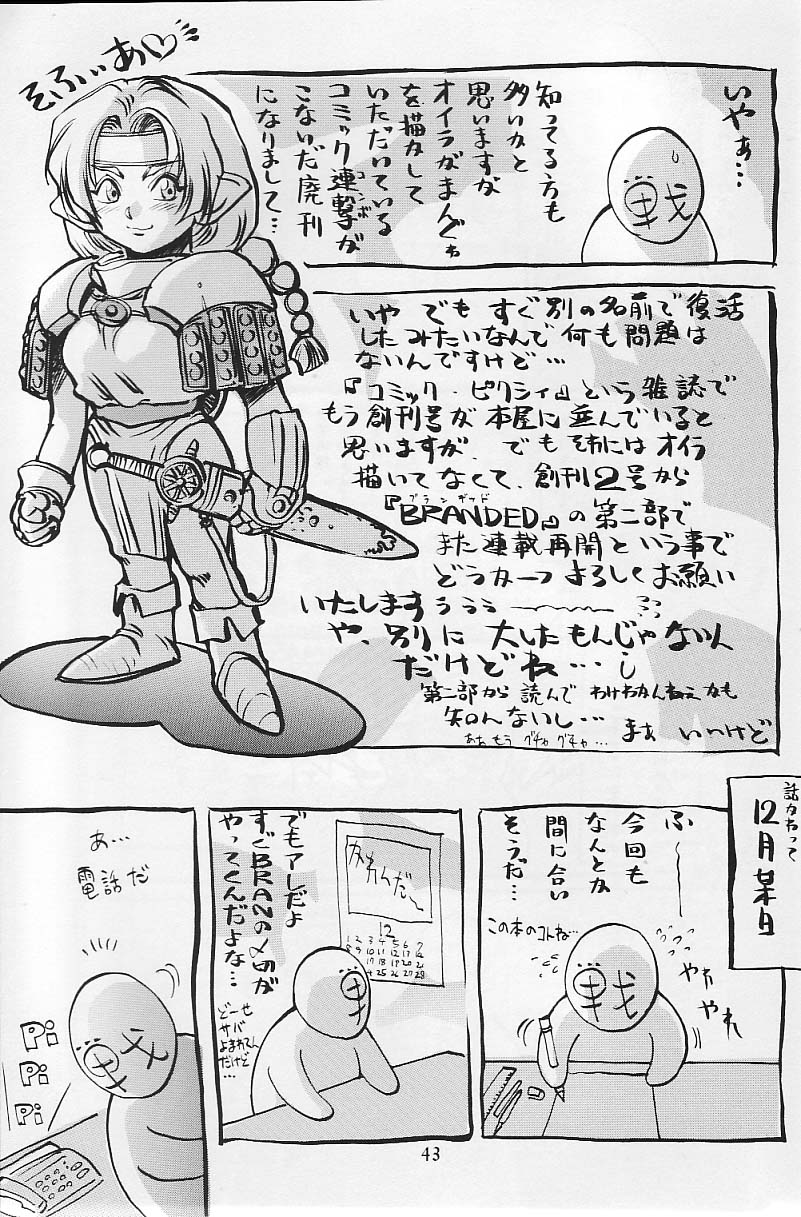 そふぃあ♡
いやぁ…
戦
知ってる方も
多いかと
思いますが
オイラがまんがぁ
を描かして
いただいている
コミック連撃が
コンボ
こないだ廃刊
になりまして…
いや でも すぐ別の名前で復活
したみたいなんで何も問題は
ないんですけど…
『コミック・ピクシィ』という雑誌で
もう創刊号が本屋に並んでいると
思いますが、でもそれにはオイラ
描いてなくて、創刊2号から
『BRANDED』の第二部で
また連載再開という事で
どうか一つよろしくお願い
いたしますぅぅぅ
や、別に大したもんじゃないん
だけどね…
第二部から読んで わけわかんねぇかも
知んないし… まぁ いいけど
ああもう グチャグチャ…
話かわって
12月某日
ふ〜
今回も
なんとか
間に合い
そうだ…
この本のコトね…
やれ
やれ
戦
でもアレだよ
すぐBRANの〆切が
やってくんだよな…
12
1 2 3 4 5 6 7
どーせ
サバ
よまれてん
だけど
…
あ…
電話だ
戦
Pi
Pi
Pi
43